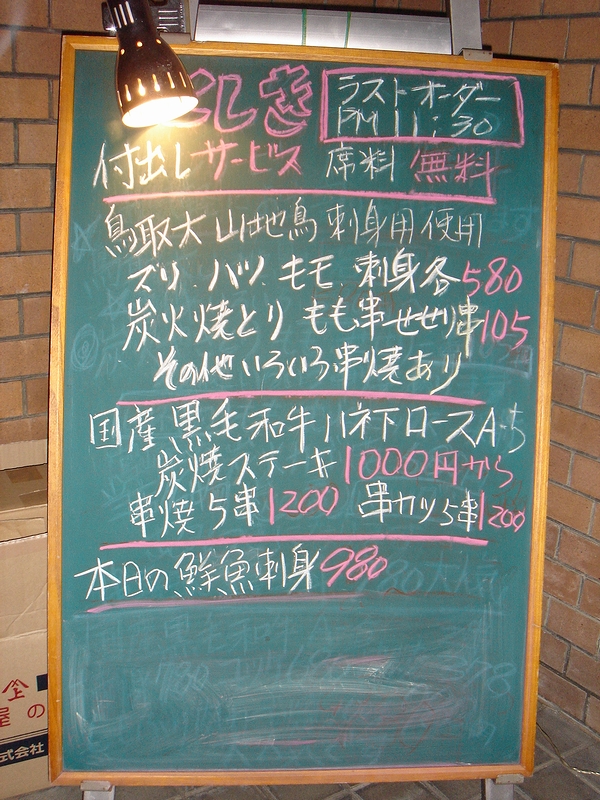 としき
ラストオーダー
PM 11:30
付出しサービス 席料 無料
鳥取大山地鳥刺身用使用
ズリ、バツ、モモ、刺身各580
炭火焼とり もも串せせり串105
その他いろいろ串焼あり
国産黒毛和牛ハネ下ロースA-5
炭焼ステーキ1000円から
串焼5本1200 串カツ5本1200
本日の鮮魚刺身980